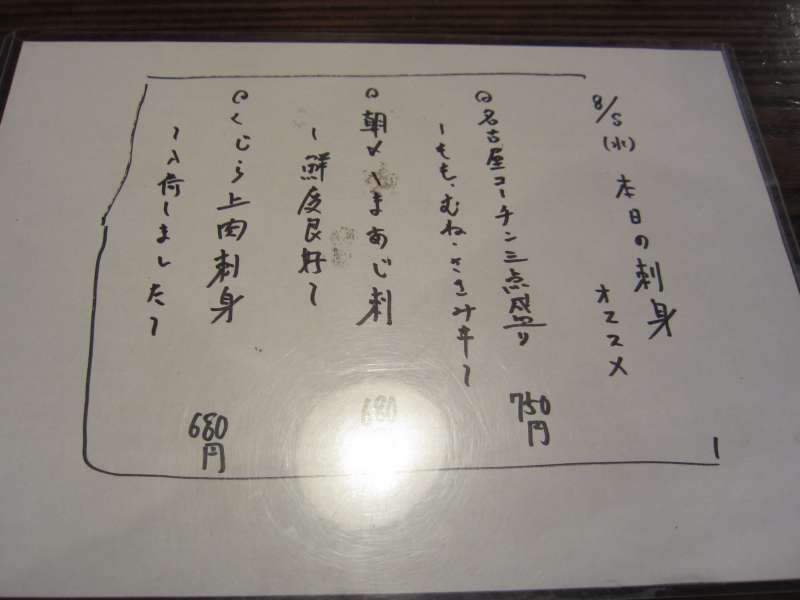 8/5(水) 本日の刺身
オススメ
名古屋コーチン三点盛り
750円
~もも、むね、ささみ 辛~
朝〆しまあじ刺
680
~鮮度良好~
くじら上肉刺身
680円
~入荷しました~